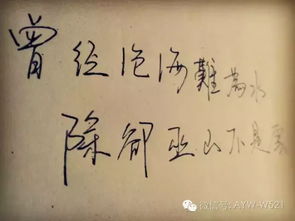 曾经沧海難為水
除却巫山不是雲
微信号: AYW-W521